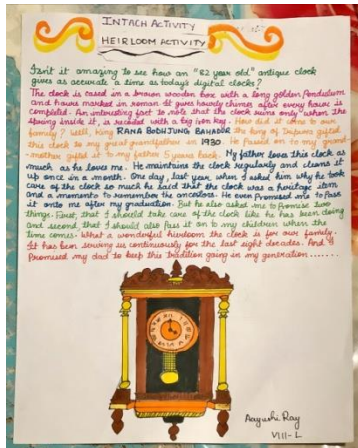 INTACH ACTIVITY
HEIRLOOM ACTIVITY
Isn't it amazing to see how an "82 year old" antique clock
gives as accurate a time as today's digital clocks?
The clock is cased in a brown wooden box with a long golden Pendulum
and hours marked in roman. It gives hourly chimes after every hour is
completed. An interesting fact to note that the clock runs only when the
spring inside it, is rewinded with a big iron key. How did it come to our
family? Well, king RANA BODHJUNG BAHADUR the king of Tripura gifted
this clock to my great grandfather in 1930. He passed on to my grand
mother gifted it to my father 5 years back. My father loves this clock as
much as he loves me. He maintains the clock regularly and cleans it
up once in a month. One day, last year when I asked him why he took
care of the clock so much he said that the clock was a heritage item
and a memento to remember the ancestors. He even Promised me to Pass
it onto me after my graduation. But he also asked me to Promise two
things. First, that I should take care of the clock like he has been doing
and second that I should also pass it on to my children when the
time comes. What a wonderful heirloom the clock is for our family.
It has been serving us continuously for the last eight decades. And I
Promised my dad to keep this tradition going in my generation.......
Aayushi Ray
VIII-L